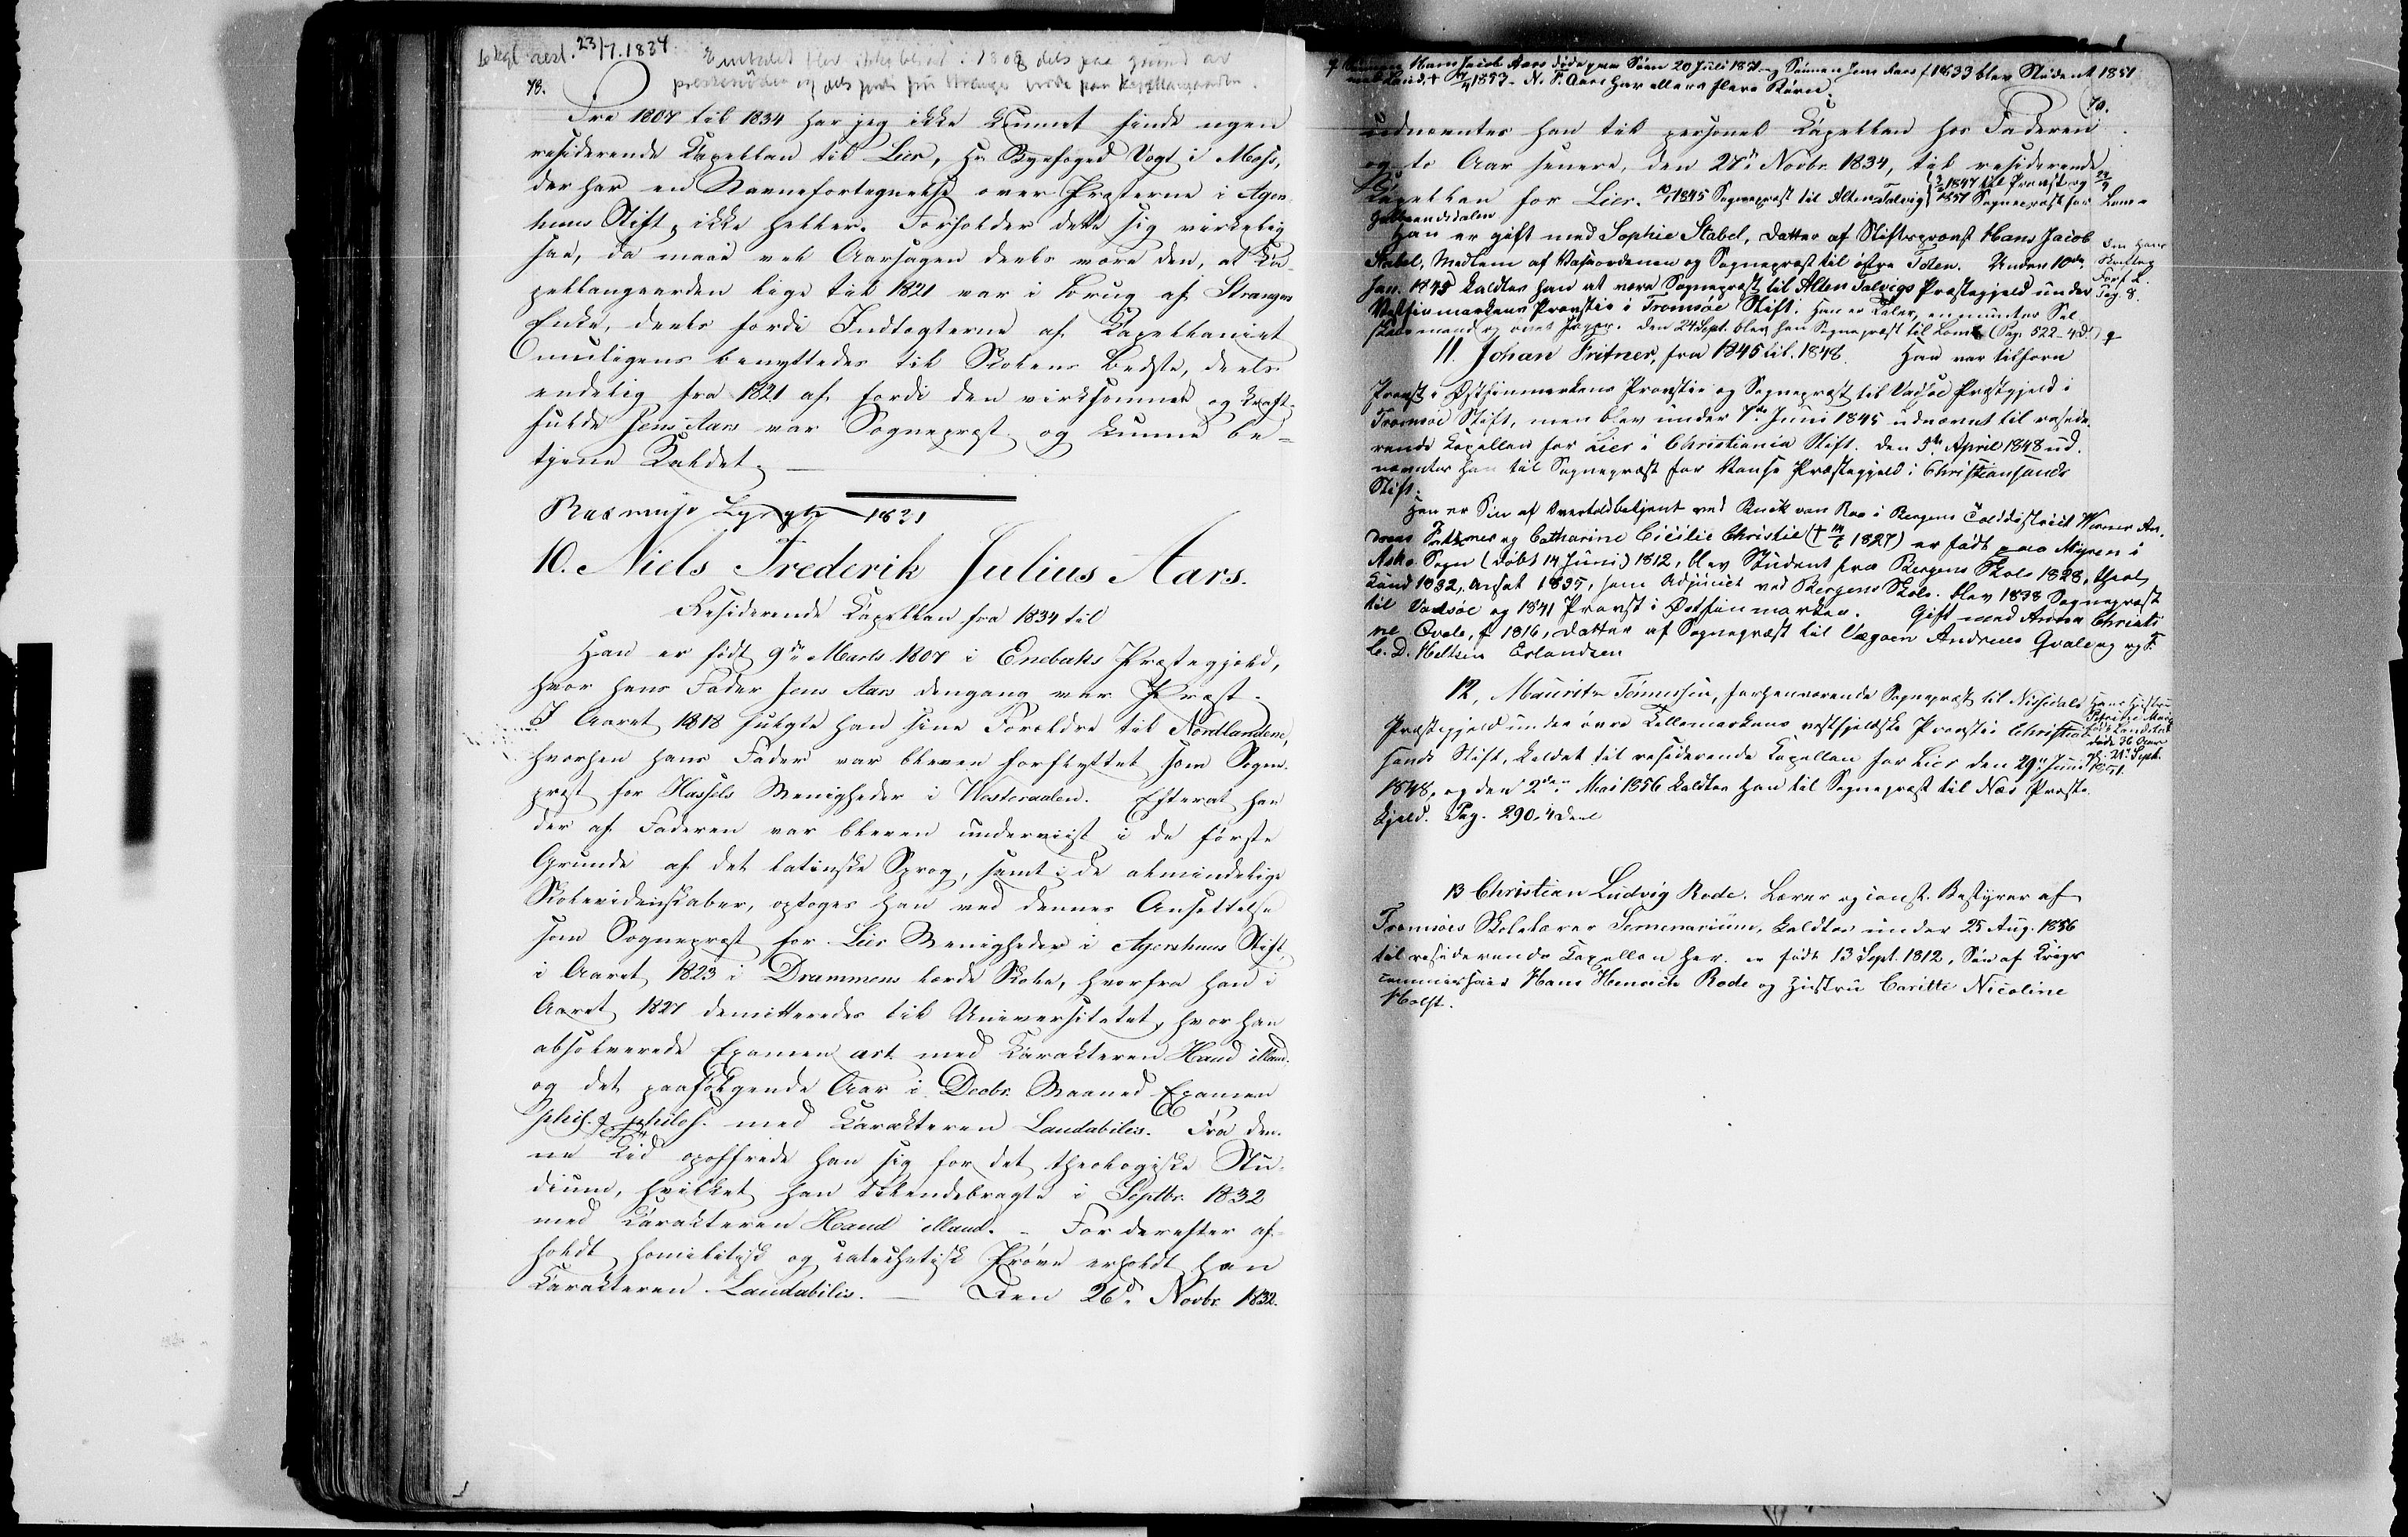 kgl. resl. 23/7. 1834. Embedet blev ikke besat i 1808 dels paa grund av
78. prestenøden og dels fordi fru Stranger boede paa Kapellangaarden.
Fra 1807 til 1834 har jeg ikke kunnet finde nogen
residerende Kapellan til Lier, Hr Byefoged Vogt i Moss,
der har en Navnefortegnelse over Præsterne i Agers-
huus Stift, ikke heller. Forholder dette sig virkelig
saa, da maae vel Aarsagen deels være den, at Ka-
pellangaarden lige til 1821 var i Brug af Strangers
Enke, deels fordi Indtægterne af Kapellaniet
muligens benyttedes til Skolens Bedste, deels
endelig fra 1821 af fordi den virksomme og kraft-
fulde Jens Aars var Sognepræst og kunne be-
tjene Kaldet. —
Rasmus Lyngh 1821
10. Niels Frederik Julius Aars.
Residerende Kapellan fra 1834 til
Han er født 9de Marts 1807 i Enebaks Præstegjeld,
hvor hans Fader Jens Aars dengang var Præst.
I Aaret 1818 fulgte han sine Forældre til Nordlandene,
hvorhen hans Fader var bleven forflyttet som Sogne-
præst for Hassels Menigheder i Westeraalen. Efterat han
der af Faderen var bleven underviist i de første
Grunde af det latinske Sprog, samt i de almindelige
Skolevidenskaber, optoges han ved dennes Ansættelse
som Sognepræst for Lier Menigheder i Agershuus Stift,
i Aaret 1823 i Drammens lærde Skole, hvorfra han i
Aaret 1827 demitteredes til Universitetet, hvor han
absolverede Examen art. med Karakteren Haud illaud.
og det paafølgende Aar i Decbr. Maaned Examen
philol. & philos. med Karakteren Laudabilis. Fra den-
ne Tid opoffrede han sig for det theologiske Stu-
dium, hvilket han tilendebragte i Septbr. 1832
med Karakteren Haud illaud. – For derefter af-
holdt homiletisk og katechetisk Prøve erholdt han
Karakteren Laudabilis. — Den 26de Novbr. 1832.
Hans Jacob Aars døde 20 Juli 1871 og Sønnen Jens Aars f 1833 blev Student 1851
1853 – N. F. Aars har ellers flere Børn.
79.
udnævntes han til personel Kapellan hos Faderen
og to Aar senere, den 27de Novbr. 1834, til residerende
Kapellan for Lier. 1845 Sognepræst til Alten-Talvig, 1847 til Provst og 1857 Sognepræst for Lom
Gulbrandsdalen
Han er gift med Sophie Stabel, Datter af Stiftsprovst Hans Jacob
Stabel, Medlem af Vasaordenen og Sognepræst til østre Toten. Under 10de
Jan. 1845 kaldtes han at være Sognepræst til Alten Talvigs Præstegjeld under
Vestfinmarkens Provstie i Tromsøe Stift. Han er Taler, en munter Sel-
skabsmand og ivrig Jæger. Den 24 Sept. blev han Sognepræst til Lom (Pag. 522. 4 D.)
11. Johan Fritner, fra 1845 til 1848. Han var tilforn
Provst i Østfinmarkens Provstie og Sognepræst til Vadsøe Præstegjeld i
Tromsøe Stift, men blev under 7de Juni 1845 udnævnt til reside-
rende Kapellan for Lier i Christiania Stift. Den 5te April 1848 ud-
nævntes han til Sognepræst for Vanse Præstegjeld i Christiansands
Stift.
Han er Søn af Overtoldbetjent ved Buch van Raa i Bergens Tolddistrict Werner An-
dreas Fritzner og Catharine Cicilie Christie († 1827) er født paa Mjøen i
Askø Sogn (døbt 14 Juni) 1812, blev Student fra Bergens Skole 1828, theol.
Kand 1832, ansat 1835, som Adjunct ved Bergens Skole. blev 1838 Sognepræst
til Vadsøe og 1841 Provst i Østfinmarken. Gift med Anna Christi-
ne Qvale, f 1816, Datter af Sognepræst til Vægøen Andreas Qvale og
C. D. Heltzen Erlandsen
12. Mauritz Tønnessen, forhenværende Sognepræst til Nissedals
Præstegjeld under øvre Tellemarkens vestfjeldske Provstie i Christian-
sands Stift, kaldet til residerende Kapellan for Lier den 29 Juni
1848, og den 2den Mai 1856 kaldtes han til Sognepræst til Næs Præste-
gjeld. Pag. 290. 4 Deel
13 Christian Ludvig Rode. Lærer og const. Bestyrer af
Tromsøes Skolelærer Semenarium, kaldtes under 25 Aug. 1856
til residerende Capellan her. er født 13 Sept. 1812, Søn af Krigs-
commissair Hans Henrich Rode og Hustru Caritte Nicoline
Holst.